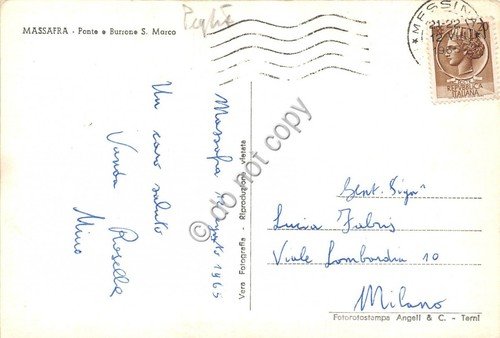 MASSAFRA - Ponte e Burrone S. Marco
Puglia
MESSINA
REPUBBLICA
ITALIANA
Massafra Agosto 1965
Un caro saluto
Vanda Rosella
Mino
Vera Fotografia - Riproduzione vietata
Gent. Sig.na
Lucia Fabris
Viale Lombardia 10
Milano
Fotorotostampa Angeli & C. - Terni
do not copy